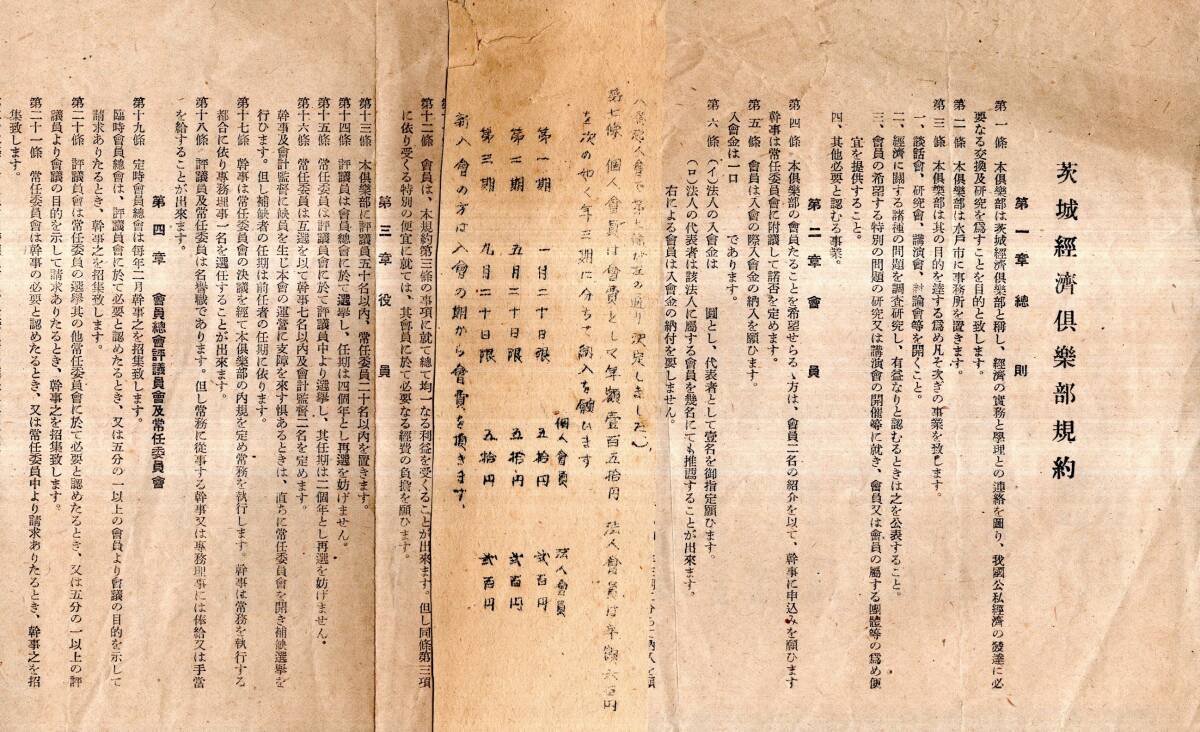 茨城經濟俱樂部規約
第一章 總則
第一條 本俱樂部は茨城經濟俱樂部と稱し、經濟の實務と學理との連絡を圖り、我國公私經濟の發達に必
要なる交換及研究を爲すことを目的と致します。
第二條 本俱樂部は水戶市に事務所を置きます。
第三條 本俱樂部は其の目的を達する爲め凡そ次ぎの事業を致します。
一、談話會、硏究會、講演會、討論會等を開くこと。
二、經濟に關する諸種の問題を調査硏究し、有益なりと認むるときは之を公表すること。
三、會員の希望する特別の問題の硏究又は講演會の開催等に就き、會員又は會員の屬する團體等の爲め便
宜を提供すること。
四、其他必要と認むる事業。
第二章 會員
第四條 本俱樂部の會員たることを希望せらるゝ方は、會員二名の紹介を以て、幹事に申込みを願ひます
幹事は常任委員會に附議して諾否を定めます。
第五條 會員は入會の際入會金の納入を願ひます。
入會金は一口 であります。
第六條 (イ)法人の入會金は 圓とし、代表者として壹名を御指定願ひます。
(ロ)法人の代表者は該法人に屬する會員を幾名にても推認することが出來ます。
右による會員は入會金の納付を要しません。
第七條 個人會員は會費として年額壹百五拾円 法人會員は年額六百円
を次の如く年三期に分ちて納入を願います
個人會員 法人會員
第一期 一月二十日限 五拾円 弐百円
第二期 五月二十日限 五拾円 弐百円
第三期 九月二十日限 五拾円 弐百円
新入會の方は入會の期から會費を頂きます。
第十二條 會員は、本規約第三條の事項に就て總て均一なる利益を受くることが出來ます。但し同條第三項
に依り受くる特別の便宜に就ては、其會員に於て必要なる經費の負擔を願ひます。
第三章 役員
第十三條 本俱樂部に評議員五十名以內、常任委員二十名以內を置きます。
第十四條 評議員は會員總會に於て選擧し、任期は四個年とし再選を妨げません。
第十五條 常任委員は評議員會に於て評議員中より選擧し、其任期は二個年とし再選を妨げません。
第十六條 常任委員は互選を以て幹事七名以內及會計監督二名を定めます。
幹事及會計監督に缺員を生じ本會の運營に支障を來す惧あるときは、直ちに常任委員會を開き補缺選擧を
行ひます。但し補缺者の任期は前任者の任期に依ります。
第十七條 幹事は常任委員會の決議を經て本俱樂部の內規を定め常務を執行します。幹事は常務を執行する
都合に依り專務理事一名を選任することが出來ます。
第十八條 評議員及常任委員は名譽職であります。但し常務に從事する幹事又は專務理事には俸給又は手當
を給することが出來ます。
第四章 會員總會評議員會及常任委員會
第十九條 定時會員總會は每年二月幹事之を招集致します。
臨時會員總會は、評議員會に於て必要と認めたるとき、又は五分の一以上の會員より會議の目的を示して
請求ありたるとき、幹事之を招集致します。
第二十條 評議員會は常任委員の選擧其の他常任委員會に於て必要と認めたるとき、又は五分の一以上の評
議員より會議の目的を示して請求ありたるとき、幹事之を招集致します。
第二十一條 常任委員會は幹事の必要と認めたるとき、又は常任委員中より請求ありたるとき、幹事之を招
集致します。